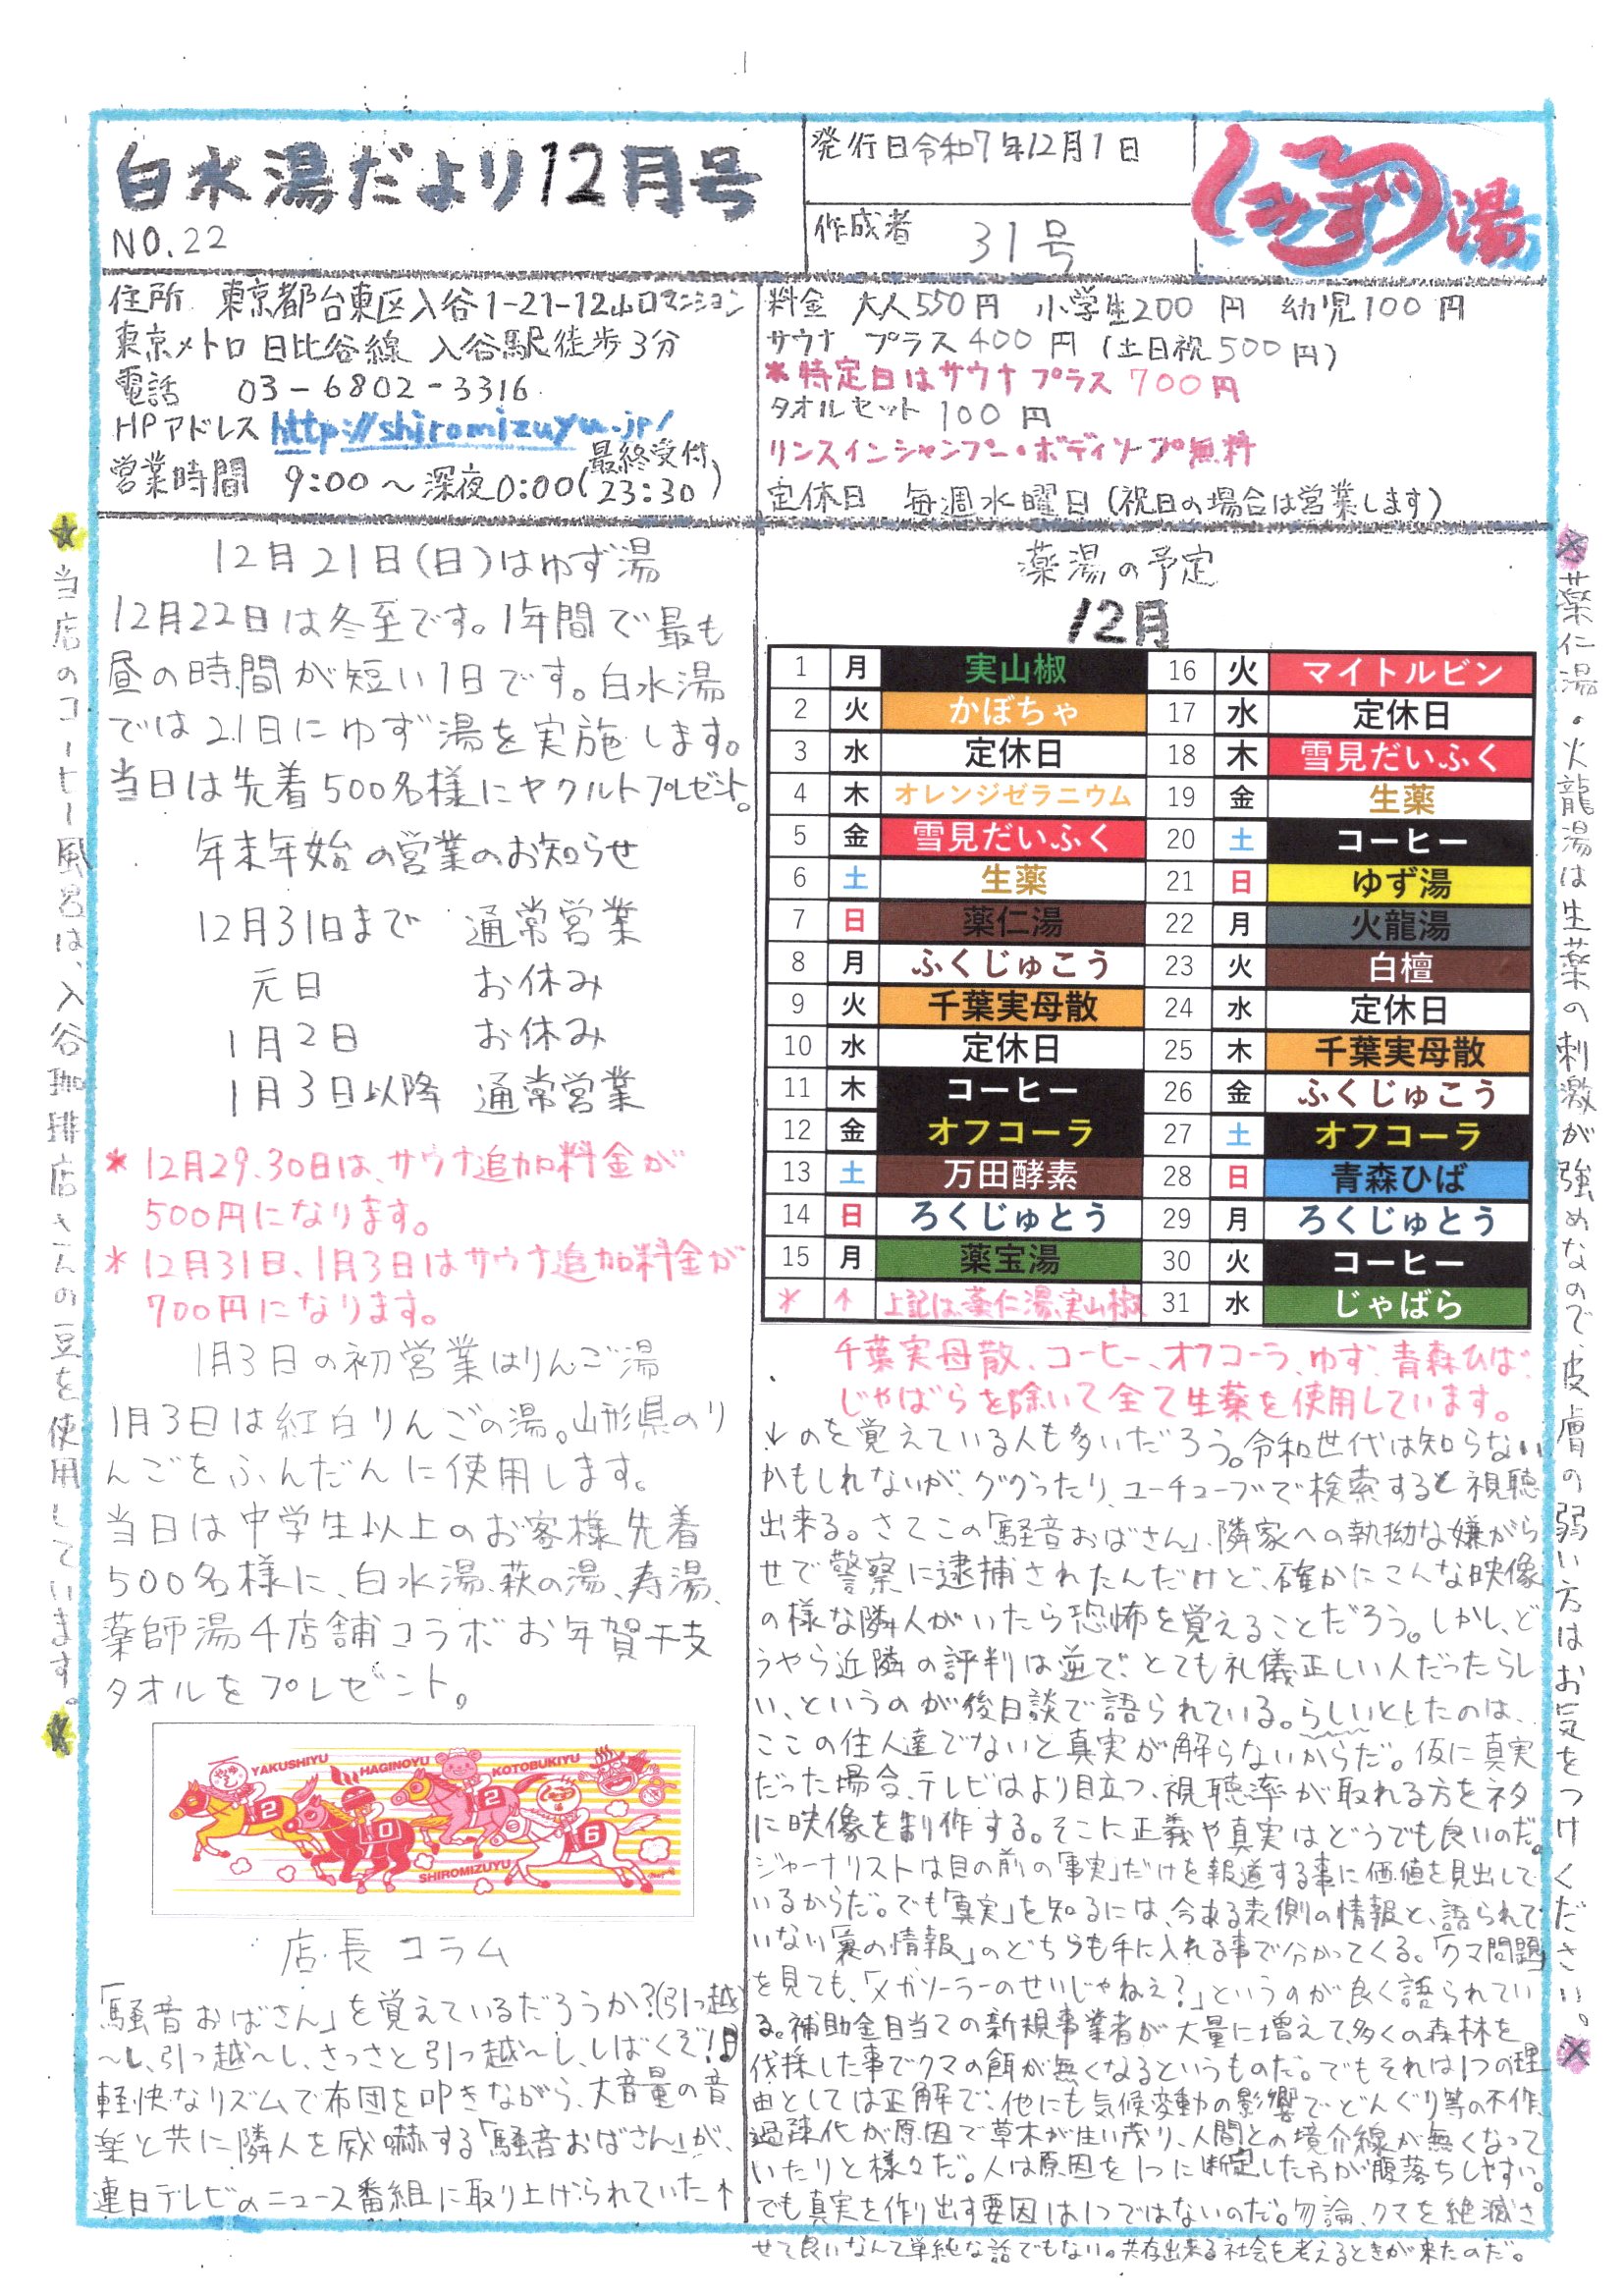 白水湯だより12月号
NO.22
発行日令和7年12月1日
作成者 31号
しろみず湯
住所 東京都台東区入谷1-21-12山口マンション
東京メトロ日比谷線 入谷駅徒歩3分
電話 03-6802-3316
HPアドレス http://shiromizuyu.jp/
営業時間 9:00〜深夜0:00(最終受付23:30)
料金 大人550円 小学生200円 幼児100円
サウナ プラス400円(土日祝500円)
*特定日はサウナプラス700円
タオルセット100円
リンスインシャンプー・ボディソープ無料
定休日 毎週水曜日(祝日の場合は営業します)
★当店のコーヒー風呂は、入谷珈琲店さんの豆を使用しています。★
12月21日(日)はゆず湯
12月22日は冬至です。1年間で最も
昼の時間が短い1日です。白水湯
では21日にゆず湯を実施します。
当日は先着500名様にヤクルトプレゼント。
年末年始の営業のお知らせ
12月31日まで 通常営業
元日 お休み
1月2日 お休み
1月3日以降 通常営業
*12月29.30日は、サウナ追加料金が
500円になります。
*12月31日、1月3日はサウナ追加料金が
700円になります。
1月3日の初営業はりんご湯
1月3日は紅白りんごの湯。山形県のり
んごをふんだんに使用します。
当日は中学生以上のお客様先着
500名様に、白水湯、萩の湯、寿湯、
薬師湯4店舗コラボお年賀干支
タオルをプレゼント。
YAKUSHIYU
HAGINOYU
KOTOBUKIYU
SHIROMIZUYU
2
0
2
6
店長コラム
「騒音おばさん」を覚えているだろうか?(引っ越
〜し、引っ越〜し、さっさと引っ越〜し、しばくぞ!♪)
軽快なリズムで布団を叩きながら、大音量の音
楽と共に隣人を威嚇する「騒音おばさん」が、
連日テレビのニュース番組に取り上げられていた↑
薬湯の予定
12月
1 月 実山椒
2 火 かぼちゃ
3 水 定休日
4 木 オレンジゼラニウム
5 金 雪見だいふく
6 土 生薬
7 日 薬仁湯
8 月 ふくじゅこう
9 火 千葉実母散
10 水 定休日
11 木 コーヒー
12 金 オフコーラ
13 土 万田酵素
14 日 ろくじゅとう
15 月 薬宝湯
16 火 マイトルビン
17 水 定休日
18 木 雪見だいふく
19 金 生薬
20 土 コーヒー
21 日 ゆず湯
22 月 火龍湯
23 火 白檀
24 水 定休日
25 木 千葉実母散
26 金 ふくじゅこう
27 土 オフコーラ
28 日 青森ひば
29 月 ろくじゅとう
30 火 コーヒー
31 水 じゃばら
* ↑ 上記は、薬仁湯、実山椒
千葉実母散、コーヒー、オフコーラ、ゆず、青森ひば、
じゃばらを除いて全て生薬を使用しています。
↓のを覚えている人も多いだろう。令和世代は知らない
かもしれないが、ググったり、ユーチューブで検索すると視聴
出来る。さてこの「騒音おばさん」、隣家への執拗な嫌がら
せで警察に逮捕されたんだけど、確かにこんな映像
の様な隣人がいたら恐怖を覚えることだろう。しかし、ど
うやら近隣の評判は逆で、とても礼儀正しい人だったらし
い、というのが後日談で語られている。らしいとしたのは、
ここの住人達でないと真実が解らないからだ。仮に真実
だった場合、テレビはより目立つ、視聴率が取れる方をネタ
に映像を制作する。そこに正義や真実はどうでも良いのだ。
ジャーナリストは目の前の「事実」だけを報道する事に価値を見出して
いるからだ。でも「真実」を知るには、今ある表側の情報と、語られて
いない「裏の情報」のどちらも手に入れる事で分かってくる。「クマ問題」
を見ても、「メガソーラーのせいじゃねぇ?」というのが良く語られてい
る。補助金目当ての新規事業者が大量に増えて、多くの森林を
伐採した事でクマの餌が無くなるというものだ。でもそれは1つの理
由としては正解で、他にも気候変動の影響でどんぐり等の不作、
過疎化が原因で草木が生い茂り、人間との境介線が無くなって
いたりと様々だ。人は原因を1つに断定した方が腹落ちしやすい。
でも真実を作り出す要因は1つではないのだ。勿論、クマを絶滅さ
せて良いなんて単純な話でもない。共存出来る社会を考えるときが来たのだ。
★薬仁湯・火龍湯は生薬の刺激が強めなので、皮膚の弱い方はお気をつけください。★